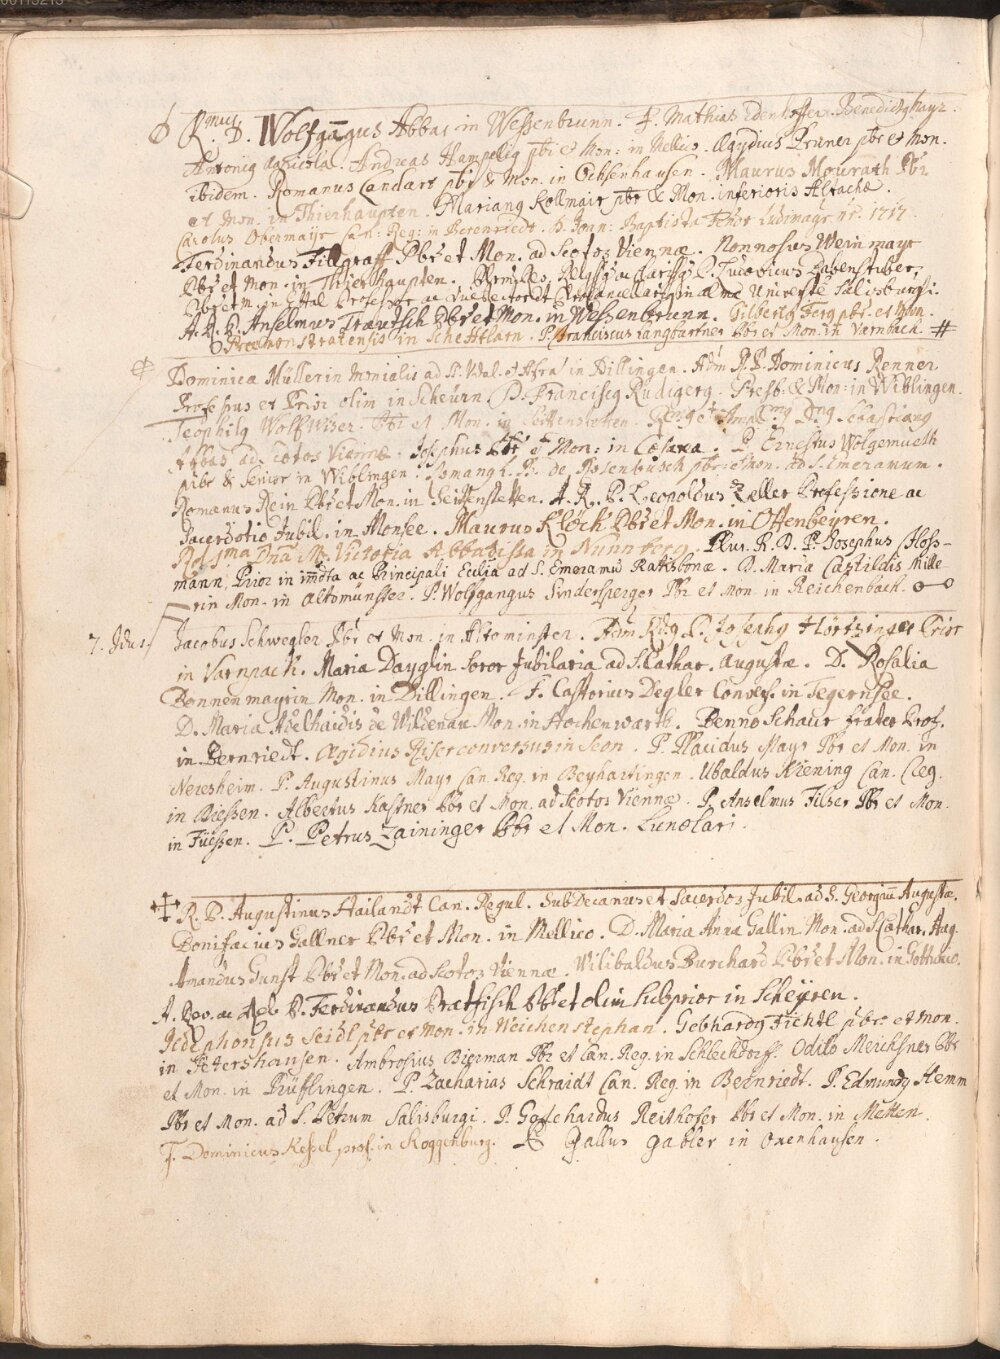 R.mus D. Wolfgangus Abbas in Wessenbrunn. F. Mathias Edenhoffer Benedictq hayr.
Antoniq Agricola. Andreas Hampelig pbr et Mon: in Mellico. Aegydius Pruner pbr et Mon.
Ibidem. Romanus Candart pbr & Mon. in Ochsenhausen. Maurus Mourath Pbr
et Mon. in Thierhaupten. Mariang Kollmair pbr & Mon. inferioris Altachæ.
Carolus Obermayr Can: Reg: in Berenriedt. D. Joan: Baptista Ludimagr. 1717.
Ferdinandus Fillgraff Pbr et Mon. ad Scotos Viennæ. Nonnosus Weinmayr
Pbr et Mon. in Thierhaupten. Ludovicus Babenstuber,
Pbr et M. in Ettal Professor ac Procancellarius in alma Universit. Salisburgi.
A. R. P. Anselmus Trautsch Pbr et Mon. in Wessenbrunn. Gilbertq Ferg pbr. et Mon.
Præmonstratensis in Schefftlarn. P. Franciscus Langbartner Pbr et Mon. in Varnbach. #
Dominica Müllerin Monialis ad S. Udal. et Afra in Dillingen. Adm R. P. Dominicus Renner
Professus et Prior olim in Scheurn. P. Franciscq Rudigerq. Presb. & Mon: in Wiblingen.
Teophilq Wolfwiser. Pbr et Mon. in Seittenstetten. R.mg et Ampl.mg Dng. Sebastiang
Abbas ad Scotos Viennæ. Josephus Pbr et Mon: in Cæsarea. P. Ernestus Wolgemueth
pibr & Senior in Wiblingen. Romang L. B. de Rosenbusch pbr: et Mon. ad S. Emeramum.
Romanus Rein Pbr et Mon. in Seittenstetten. A. R. P. Leopoldus Zeller Professione ac
Sacerdotio Jubil. in Monsee. Maurus Klöck Pbr et Mon. in Ottenbeyren.
Rdssma Dna M. Victoria Abbatissa in Nunnberg. Plur. R. D. P. Josephus Hoff-
mann, Prior in imdta ac Principali Ecclia ad S. Emeramū Ratisbonæ. D. Maria Castildis Mille-
rin Mon. in Altomünster. P. Wolfgangus Sindersperger Pbr et Mon. in Reichenbach.
7. Idus. Jacobus Schwegler Pbr et Mon. in Altominster. Adm Rdq P. Josephq Hörtzinger Prior
in Varnpach. Maria Dayglin Soror Jubilaria ad S. Cathar. Augustæ. D. Rosalia
Bonnenmayrin Mon. in Dillingen. F. Castorius Degler Convers. in Tegernsee.
D. Maria Adelhaidis de Wildenau Mon. in Hochenwarth. Benno Schaur frater Prof.
in Bernriedt. Aegidius Riser conversus in Seon. P. Placidus Mayr Pbr et Mon. in
Neresheim. P. Augustinus Mayr Can. Reg. in Beyhartingen. Ubaldus Kiening Can. Reg.
in Diessen. Albertus Kastner Pbr et Mon. ad Scotos Viennæ. P. Anselmus Filser Pbr et Mon.
in Füessen. P. Petrus Zaininger Pbr et Mon. Lunælaci.
R. P. Augustinus Hailandt Can. Regul. SubDecanus et Sacerdos Jubil. ad S. Georgiū Augustæ.
Bonifacius Gallner Pbr et Mon. in Mellico. D. Maria Anna Gallin Mon. ad S. Cathar. Aug.
Amandus Gunst Pbr et Mon. ad Scotos Viennæ. Wilibaldus Burchard Pbr et Mon. in Gottwico.
A. Rev. ac Rel. P. Ferdinandus Prætfisch Pbr et olim Subprior in Scheÿren.
Ildephonsus Seidl pbr et Mon. in Weichenstephan. Gebhardq Fichtl pbr. et Mon.
in Petershausen. Ambrosius Bierman Pbr et Can. Reg. in Schlechdorff. Odilo Meichsner Pbr
et Mon. in Prüfflingen. P. Zacharias Schmidt Can. Reg. in Bernriedt. P. Edmundq Hemm
Pbr et Mon. ad S. Petrum Salisburgi. P. Gotthardus Reithofer Pbr et Mon. in Metten.
F. Dominicus Kessel prof. in Roggenburg. P. Gallus Gabler in Oxenhausen.